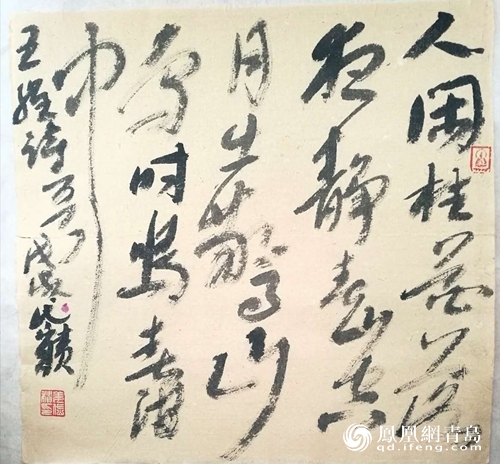 人闲桂花落
夜静春山空
月出驚山
鸟时鸣春涧
中
王维诗 戊戌
鳳凰網青島
qd.ifeng.com